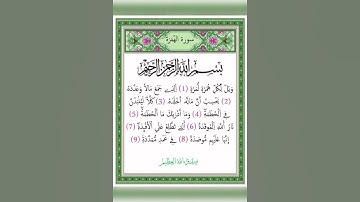 سورة الهمزة
بسم الله الرحمن الرحيم
وَيْلٌ لِكُلِّ هُمَزَةٍ لُمَزَةٍ (1) الَّذِي جَمَعَ مَالًا وَعَدَّدَهُ
(2) يَحْسَبُ أَنَّ مَالَهُ أَخْلَدَهُ (3) كَلَّا لَيُنْبَذَنَّ
فِي الْحُطَمَةِ (4) وَمَا أَدْرَاكَ مَا الْحُطَمَةُ (5)
نَارُ اللَّهِ الْمُوقَدَةُ (6) الَّتِي تَطَّلِعُ عَلَى الْأَفْئِدَةِ (7)
إِنَّهَا عَلَيْهِمْ مُؤْصَدَةٌ (8) فِي عَمَدٍ مُمَدَّدَةٍ (9)
صدق الله العظيم